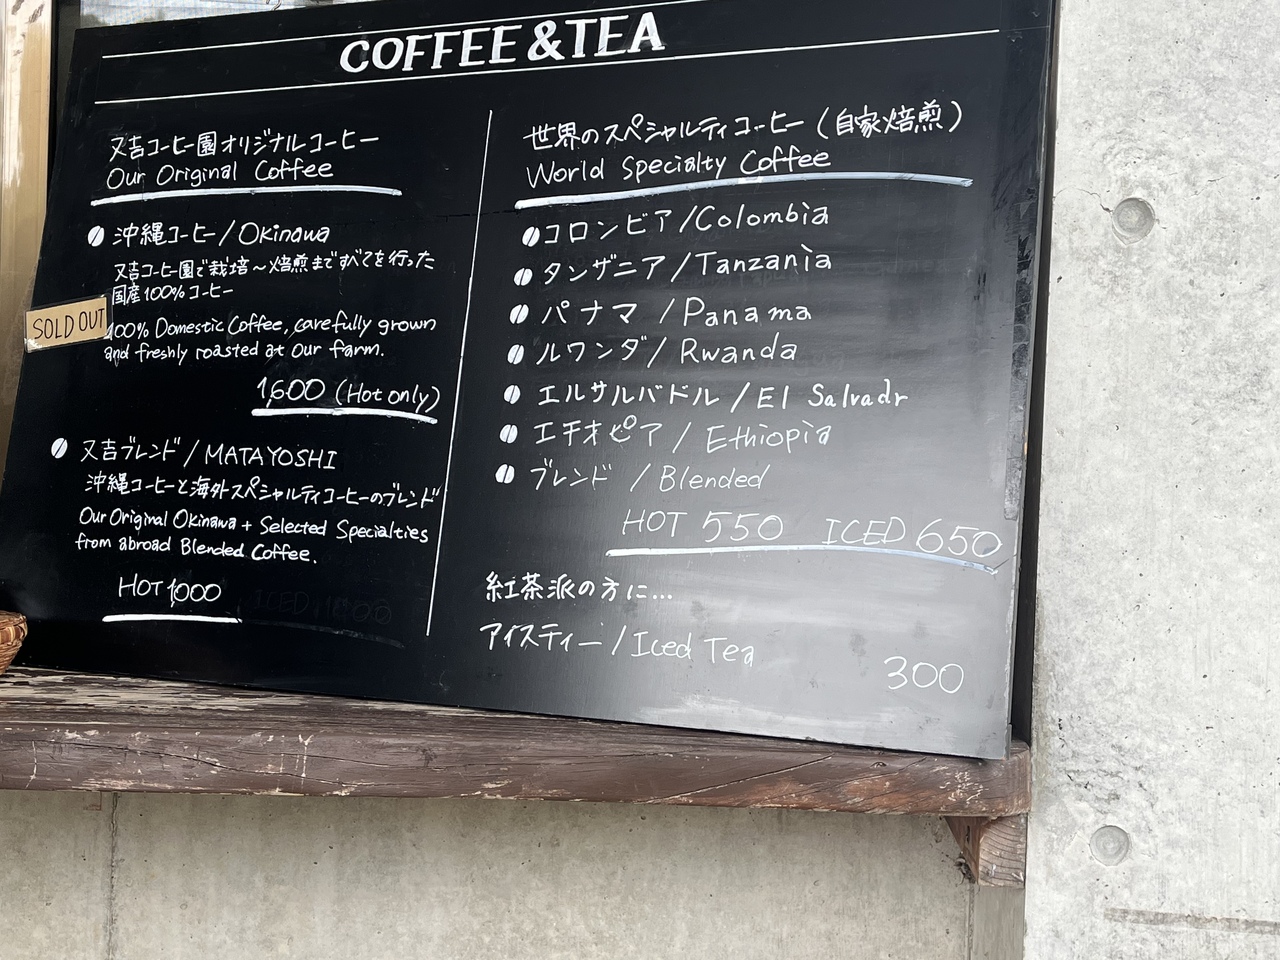 COFFEE & TEA
又吉コーヒー園オリジナルコーヒー
Our Original Coffee
沖縄コーヒー/Okinawa
又吉コーヒー園で栽培～焙煎まですべてを行った
国産100%コーヒー
SOLD OUT
100% Domestic Coffee, carefully grown
and freshly roasted at our farm.
1,600 (Hot only)
又吉ブレンド/MATAYOSHI
沖縄コーヒーと海外スペシャルティコーヒーのブレンド
Our Original Okinawa + Selected Specialties
from abroad Blended Coffee.
HOT 1,000
ICED 1,000
世界のスペシャルティコーヒー(自家焙煎)
World Specialty Coffee
コロンビア/Colombia
タンザニア/Tanzania
パナマ/Panama
ルワンダ/Rwanda
エルサルバドル/El Salvadr
エチオピア/Ethiopia
ブレンド/Blended
HOT 550 ICED 650
紅茶派の方に...
アイスティー/Iced Tea
300